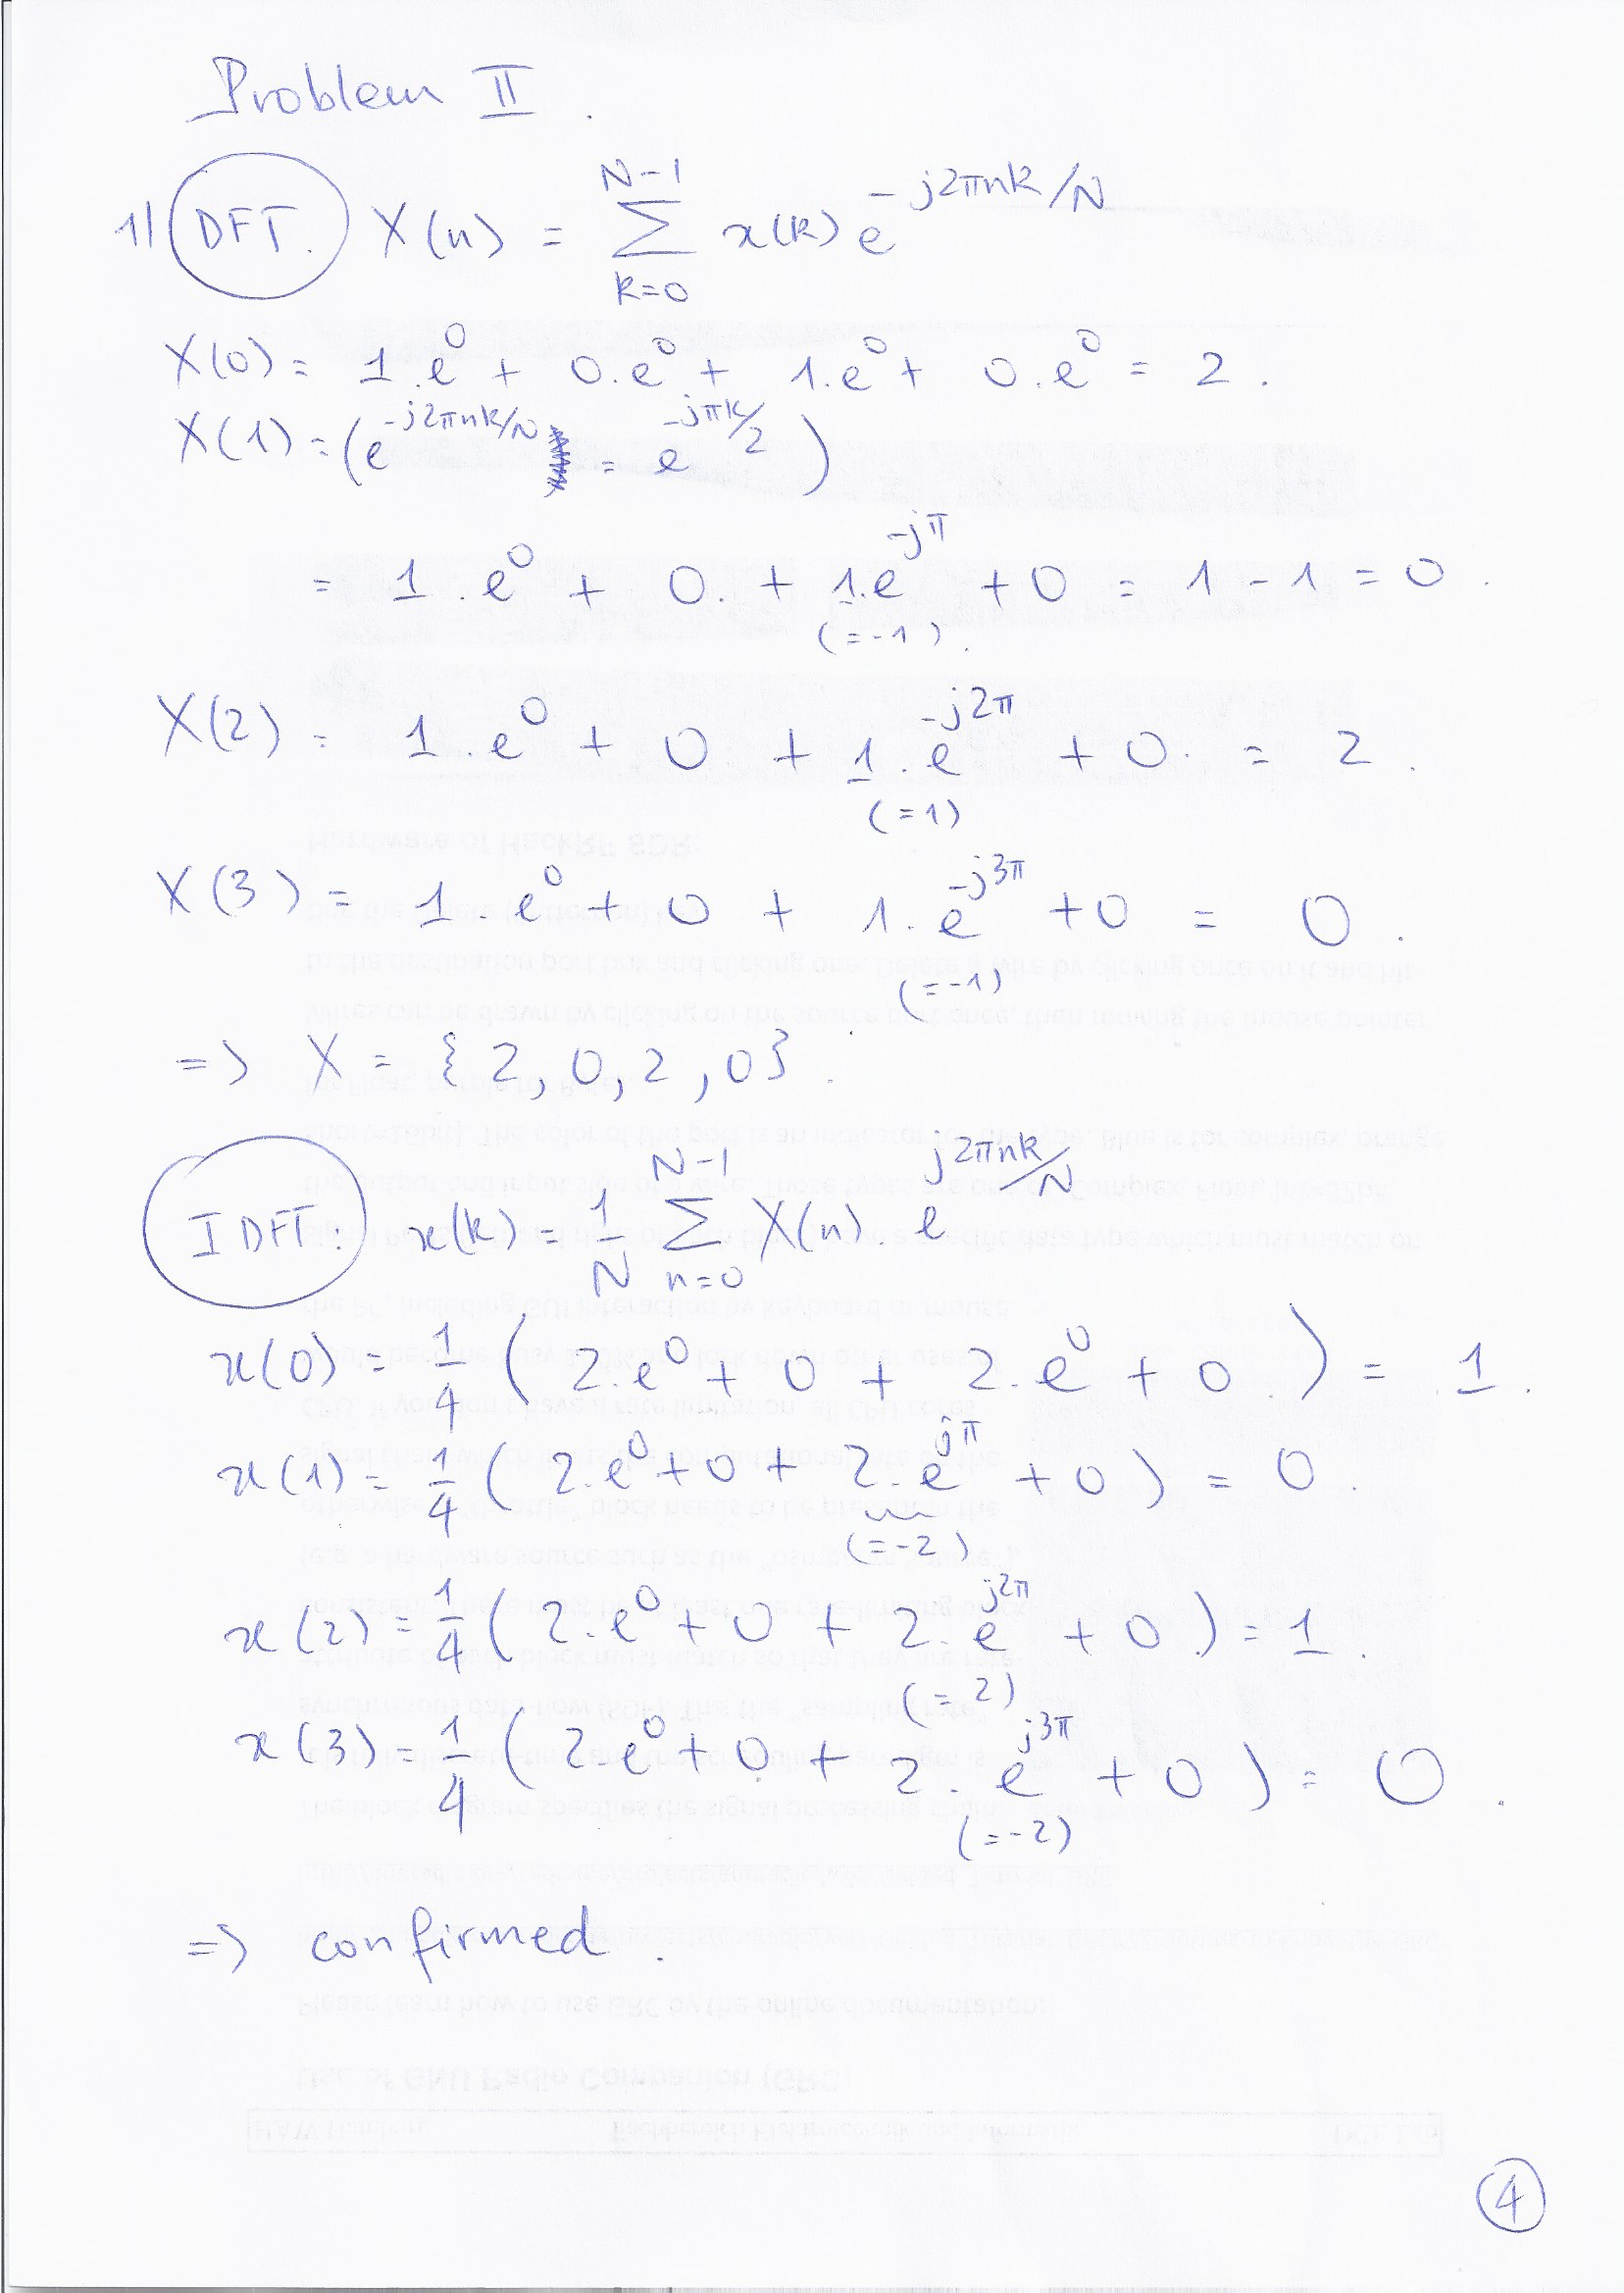 Problem II.
1) DFT. X(n) = ∑_{k=0}^{N-1} x(k) e^{-j2πnk/N}
X(0) = 1.e^0 + 0.e^0 + 1.e^0 + 0.e^0 = 2.
X(1) = (e^{-j2πnk/N} = e^{-jπk/2})
= 1.e^0 + 0. + 1.e^{-jπ} + 0 = 1 - 1 = 0.
(=-1).
X(2) = 1.e^0 + 0 + 1.e^{-j2π} + 0. = 2.
(=1)
X(3) = 1.e^0 + 0 + 1.e^{-j3π} + 0 = 0.
(=-1)
=> X = {2, 0, 2, 0}.
IDFT: x(k) = 1/N ∑_{n=0}^{N-1} X(n). e^{j2πnk/N}
x(0) = 1/4 (2.e^0 + 0 + 2.e^0 + 0.) = 1.
x(1) = 1/4 (2.e^0 + 0 + 2.e^{jπ} + 0) = 0.
(=-2)
x(2) = 1/4 (2.e^0 + 0 + 2.e^{j2π} + 0) = 1.
(=2)
x(3) = 1/4 (2.e^0 + 0. + 2.e^{j3π} + 0) = 0.
(=-2)
=> confirmed.
4